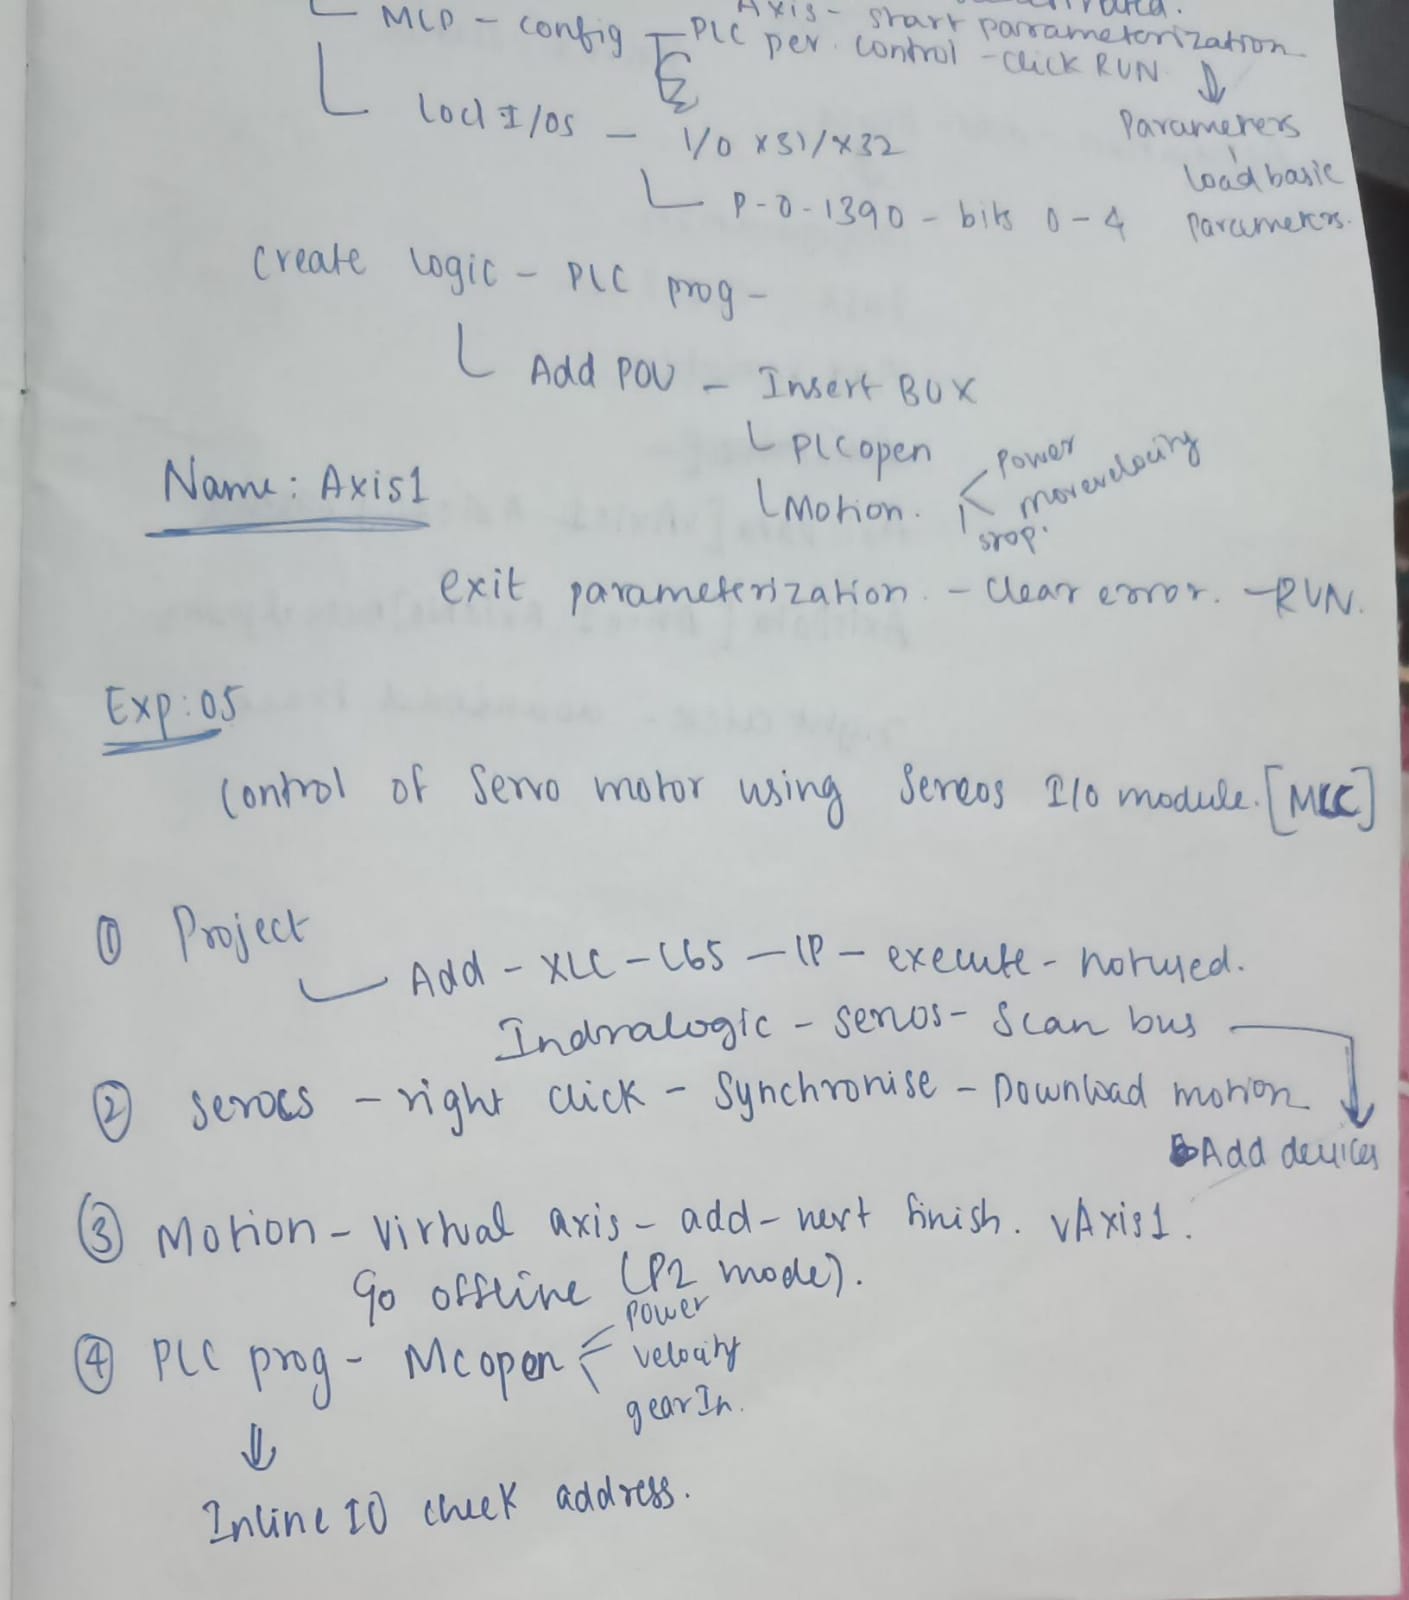 Axis - start parameterization
MLD - config - PLC per. control - click RUN
Parameters
load basic
parameters.
Locl I/Os - I/O X31/X32
P-0-1390 - bits 0-4
Create logic - PLC prog -
Add POU - Insert BOX
PLC open
Motion. power
movevelocity
stop.
Name: Axis1
exit parameterization. - Clear error. - RUN.
Exp: 05
Control of Servo motor using Sercos I/O module. [MLC]
① Project
Add - XLC - L65 - IP - execute - not used.
Indralogic - sercos - Scan bus
② sercos - right click - Synchronise - Download motion
Add devices
③ Motion - virtual axis - add - next finish. vAxis1.
Go offline (P2 mode).
④ PLC prog - Mc open power
velocity
gearIn.
Inline IO check address.